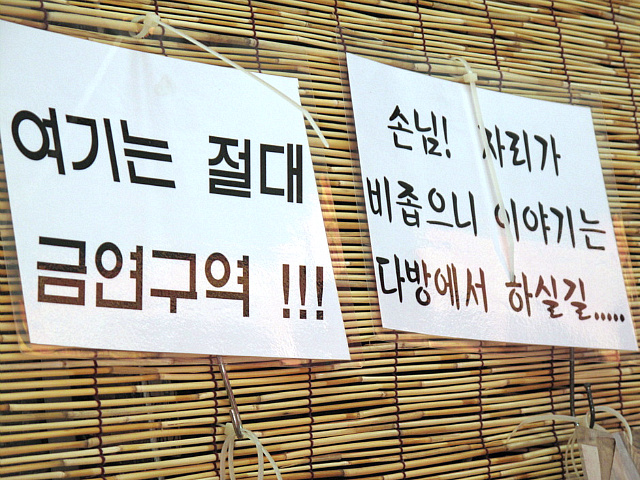 여기는 절대
금연구역 !!!
손님! 자리가
비좁으니 이야기는
다방에서 하실길.....